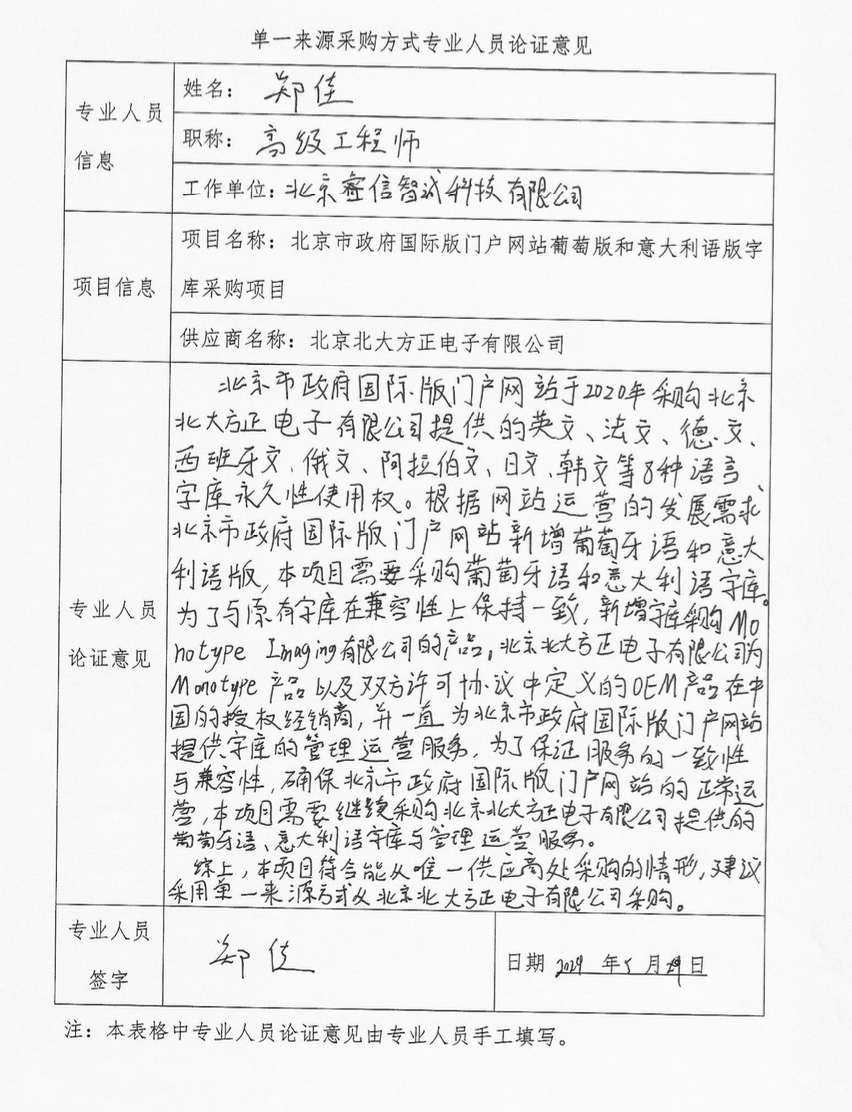 单一来源采购方式专业人员论证意见
专业人员
信息
姓名: 郑佳
职称: 高级工程师
工作单位: 北京睿信智诚科技有限公司
项目信息
项目名称: 北京市政府国际版门户网站葡萄版和意大利语版字
库采购项目
供应商名称: 北京北大方正电子有限公司
专业人员
论证意见
北京市政府国际版门户网站于2020年采购北京
北大方正电子有限公司提供的英文、法文、德文、
西班牙文、俄文、阿拉伯文、日文、韩文等8种语言
字库永久性使用权。根据网站运营的发展需求,
北京市政府国际版门户网站新增葡萄牙语和意大
利语版,本项目需要采购葡萄牙语和意大利语字库。
为了与原有字库在兼容性上保持一致,新增字库采购Mo
notype Imaging有限公司的产品,北京北大方正电子有限公司为
Monotype产品以及双方许可协议中定义的OEM产品在中
国的授权经销商,并一直为北京市政府国际版门户网站
提供字库的管理运营服务,为了保证服务的一致性
与兼容性,确保北京市政府国际版门户网站的正常运
营,本项目需要继续采购北京北大方正电子有限公司提供的
葡萄牙语、意大利语字库与管理运营服务。
综上,本项目符合能从唯一供应商处采购的情形,建议
采用单一来源方式从北京北大方正电子有限公司采购。
专业人员
签字
郑佳
日期 2024 年 5 月 29 日
注: 本表格中专业人员论证意见由专业人员手工填写。